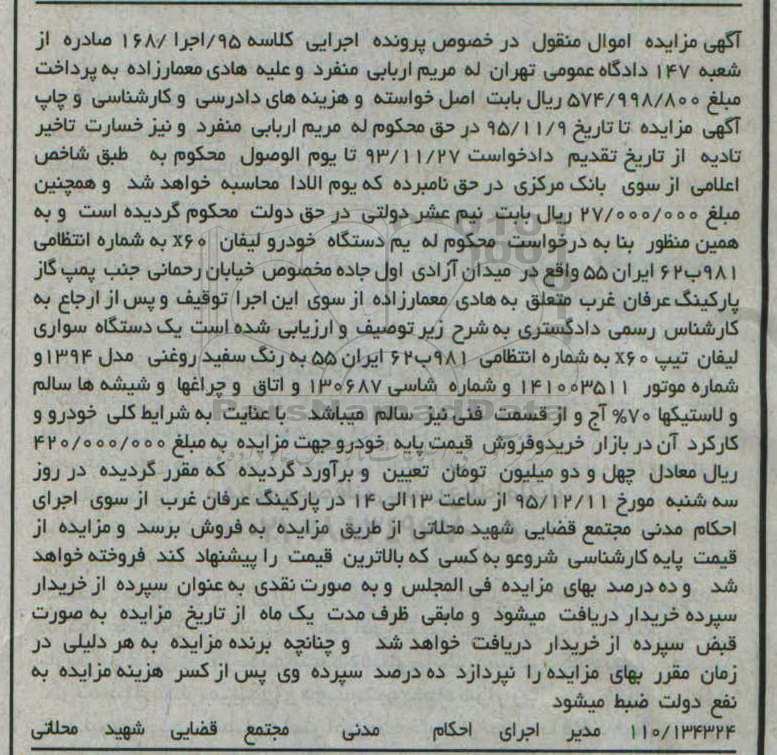 آگهی مزایده اموال منقول در خصوص پرونده اجرایی کلاسه ۹۵/اجرا /۱۶۸ صادره از
شعبه ۱۴۷ دادگاه عمومی تهران له مریم اربابی منفرد و علیه هادی معمارزاده به پرداخت
مبلغ ۵۷۴/۹۹۸/۸۰۰ ریال بابت اصل خواسته و هزینه های دادرسی و کارشناسی و چاپ
آگهی مزایده تا تاریخ ۹۵/۱۱/۹ در حق محکوم له مریم اربابی منفرد و نیز خسارت تاخیر
تادیه از تاریخ تقدیم دادخواست ۹۳/۱۱/۲۷ تا یوم الوصول محکوم به طبق شاخص
اعلامی از سوی بانک مرکزی در حق نامبرده که یوم الادا محاسبه خواهد شد و همچنین
مبلغ ۲۷/۰۰۰/۰۰۰ ریال بابت نیم عشر دولتی در حق دولت محکوم گردیده است و به
همین منظور بنا به درخواست محکوم له یم دستگاه خودرو لیفان x۶۰ به شماره انتظامی
۹۸۱ب۶۲ ایران ۵۵ واقع در میدان آزادی اول جاده مخصوص خیابان رحمانی جنب پمپ گاز
پارکینگ عرفان غرب متعلق به هادی معمارزاده از سوی این اجرا توقیف و پس از ارجاع به
کارشناس رسمی دادگستری به شرح زیر توصیف و ارزیابی شده است یک دستگاه سواری
لیفان تیپ x۶۰ به شماره انتظامی ۹۸۱ب۶۲ ایران ۵۵ به رنگ سفید روغنی مدل ۱۳۹۴و
شماره موتور ۱۴۱۰۰۳۵۱۱ و شماره شاسی ۱۳۰۶۸۷ و اتاق و چراغها و شیشه ها سالم
و لاستیکها ۷۰% آج و از قسمت فنی نیز سالم میباشد با عنایت به شرایط کلی خودرو و
کارکرد آن در بازار خریدوفروش قیمت پایه خودرو جهت مزایده به مبلغ ۴۲۰/۰۰۰/۰۰۰
ریال معادل چهل و دو میلیون تومان تعیین و برآورد گردیده که مقرر گردیده در روز
سه شنبه مورخ ۹۵/۱۲/۱۱ از ساعت ۱۳الی ۱۴ در پارکینگ عرفان غرب از سوی اجرای
احکام مدنی مجتمع قضایی شهید محلاتی از طریق مزایده به فروش برسد و مزایده از
قیمت پایه کارشناسی شروعو به کسی که بالاترین قیمت را پیشنهاد کند فروخته خواهد
شد و ده درصد بهای مزایده فی المجلس و به صورت نقدی به عنوان سپرده از خریدار
سپرده خریدار دریافت میشود و مابقی ظرف مدت یک ماه از تاریخ مزایده به صورت
قبض سپرده از خریدار دریافت خواهد شد و چنانچه برنده مزایده به هر دلیلی در
زمان مقرر بهای مزایده را نپردازد ده درصد سپرده وی پس از کسر هزینه مزایده به
نفع دولت ضبط میشود
۱۱۰/۱۳۴۳۲۴ مدیر اجرای احکام مدنی مجتمع قضایی شهید محلاتی